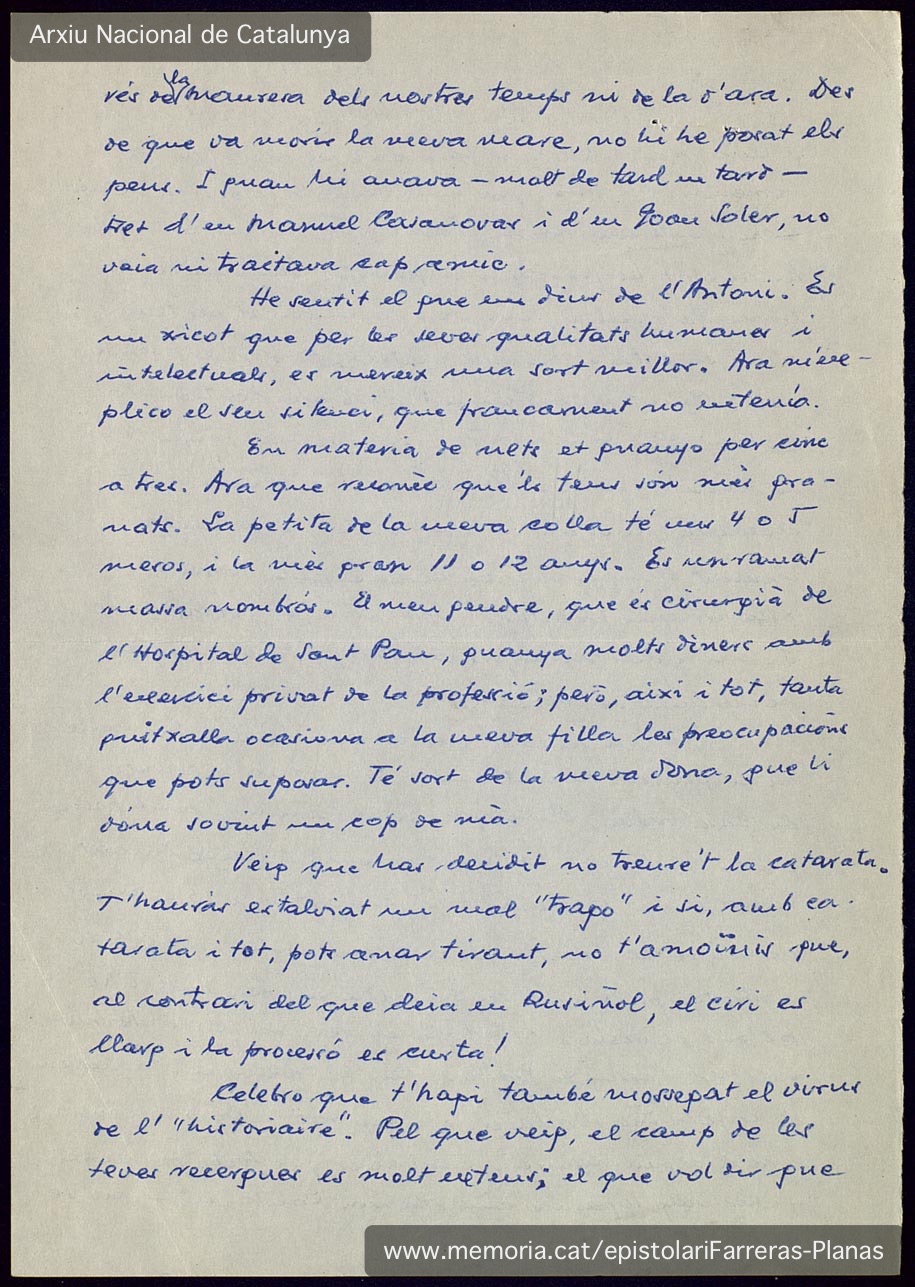 Arxiu Nacional de Catalunya
rés de la Manresa dels nostres temps ni de la d'ara. Des
de que va morir la meva mare, no hi he posat els
peus. I quan hi anava – molt de tard en tard –
tret d'en Manuel Casanovas i d'en Joan Soler, no
veia ni tractava cap amic.
He sentit el que em dius de l'Antoni. Es
un xicot que per les seves qualitats humanes i
intelectuals, es mereix una sort millor. Ara m'ex-
plico el seu silenci, que francament no entenía.
En materia de nets et guanyo per cinc
a tres. Ara que reconèc que'ls teus són més gra-
nats. La petita de la meva colla té uns 4 o 5
mesos, i la més gran 11 o 12 anys. Es un ramat
massa nombrós. El meu gendre, que és cirurgià de
l'Hospital de Sant Pau, guanya molts diners amb
l'exercici privat de la professió; però, aixi i tot, tanta
quitxalla ocasiona a la meva filla les preocupacións
que pots suposar. Té sort de la meva dona, que li
dóna sovint un cop de mà.
Veig que has decidit no treure't la catarata.
T'hauràs estalviat un mal "trago" i si, amb ca-
tarata i tot, pots anar tirant, no t'amoïnis que,
al contrari del que deia en Rusiñol, el ciri es
llarg i la processó es curta!
Celebro que t'hagi també mossegat el virus
de l' "historiaire". Pel que veig, el camp de les
teves recerques es molt extens; el que vol dir que
www.memoria.cat/epistolariFarreras-Planas